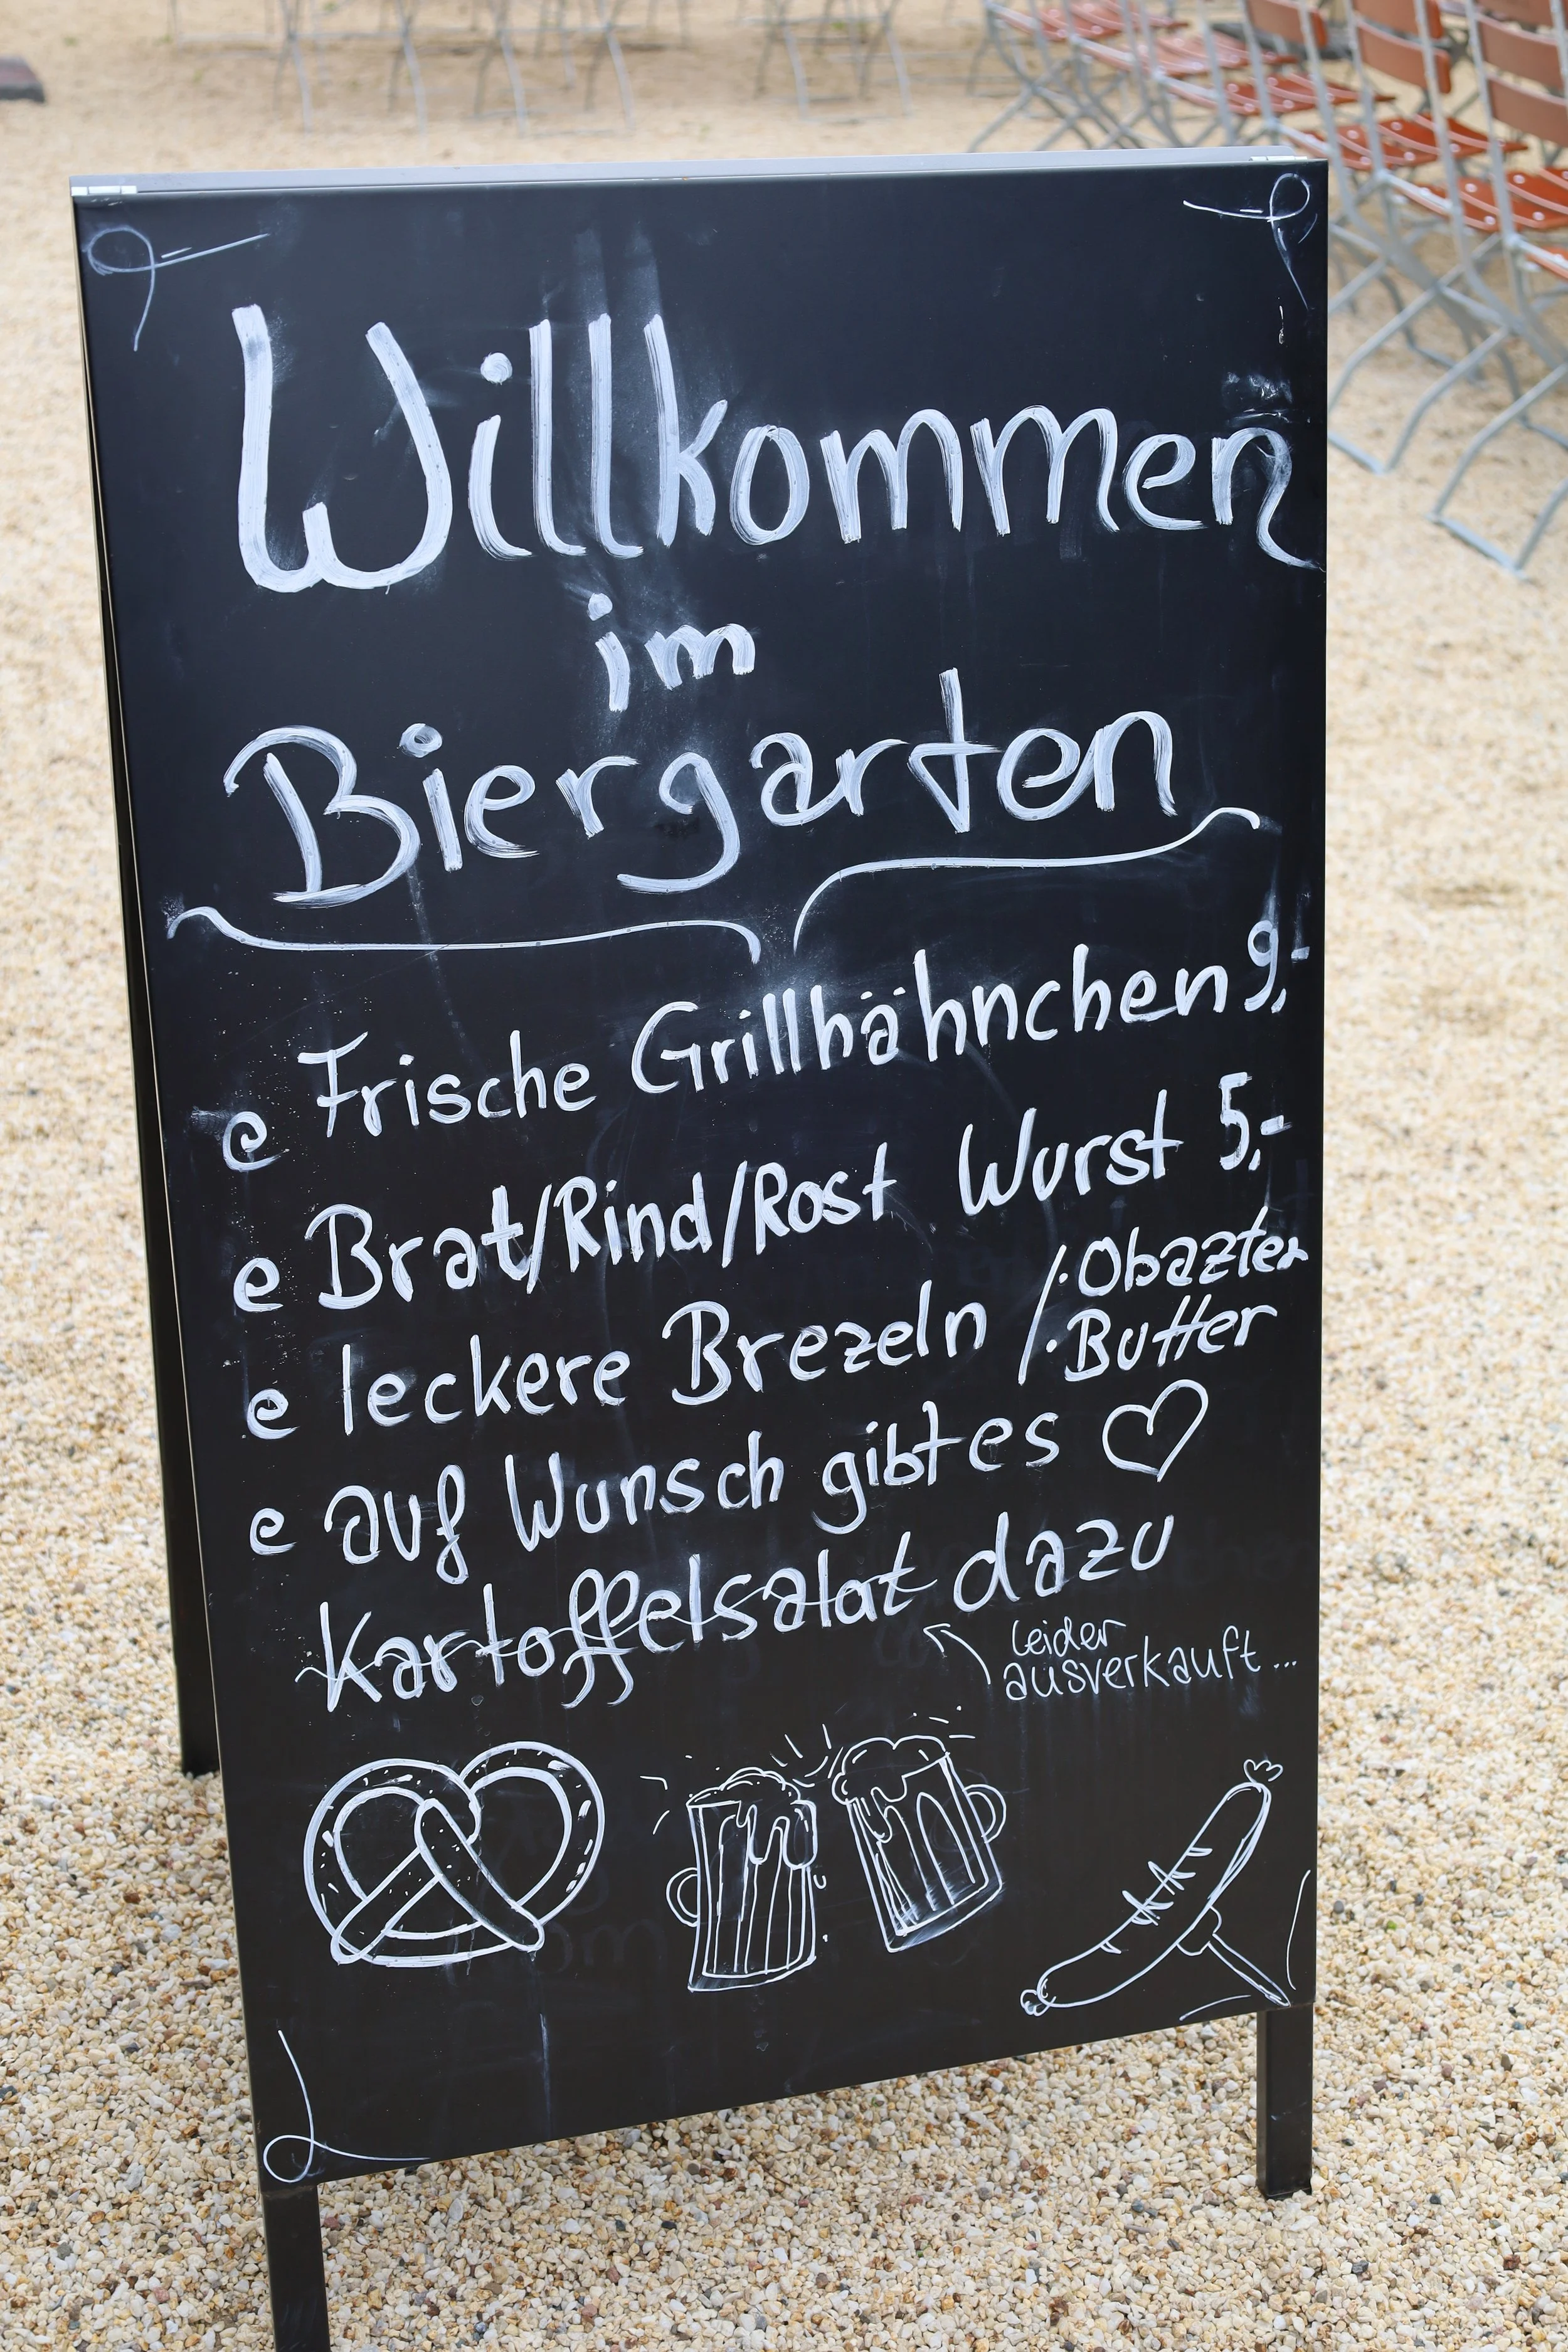 Willkommen
im
Biergarten
Frische Grillhähnchen 9,-
Brat/Rind/Rost Wurst 5,-
leckere Brezeln / · Obazter
· Butter
auf Wunsch gibt es ♡
Kartoffelsalat dazu
leider
ausverkauft...